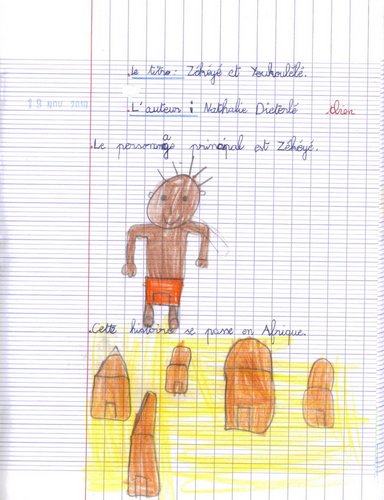 Le titre : Zékéyé et Youkoulélé.
19 NOV. 2014
L'auteur : Nathalie Dieterlé
bien
Le personnage principal est Zékéyé.
Cette histoire se passe en Afrique.